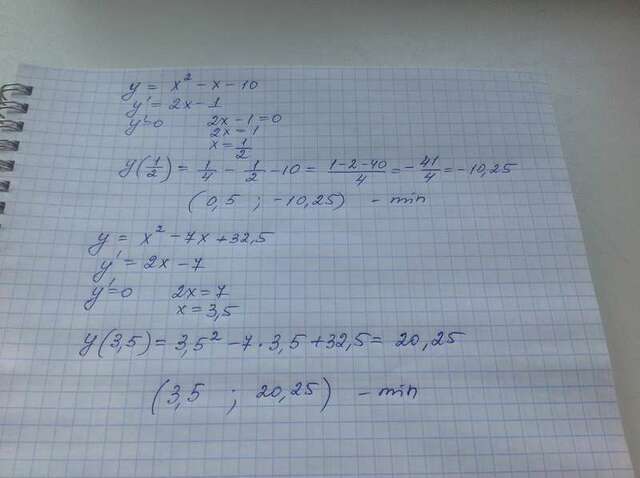 y = x² - x - 10
y' = 2x - 1
y'=0 2x - 1 = 0
2x = 1
x = 1/2
y(1/2) = 1/4 - 1/2 - 10 = (1-2-40)/4 = -41/4 = -10,25
(0,5 ; -10,25) - min
y = x² - 7x + 32,5
y' = 2x - 7
y'=0 2x = 7
x = 3,5
y(3,5) = 3,5² - 7 · 3,5 + 32,5 = 20,25
(3,5 ; 20,25) - min